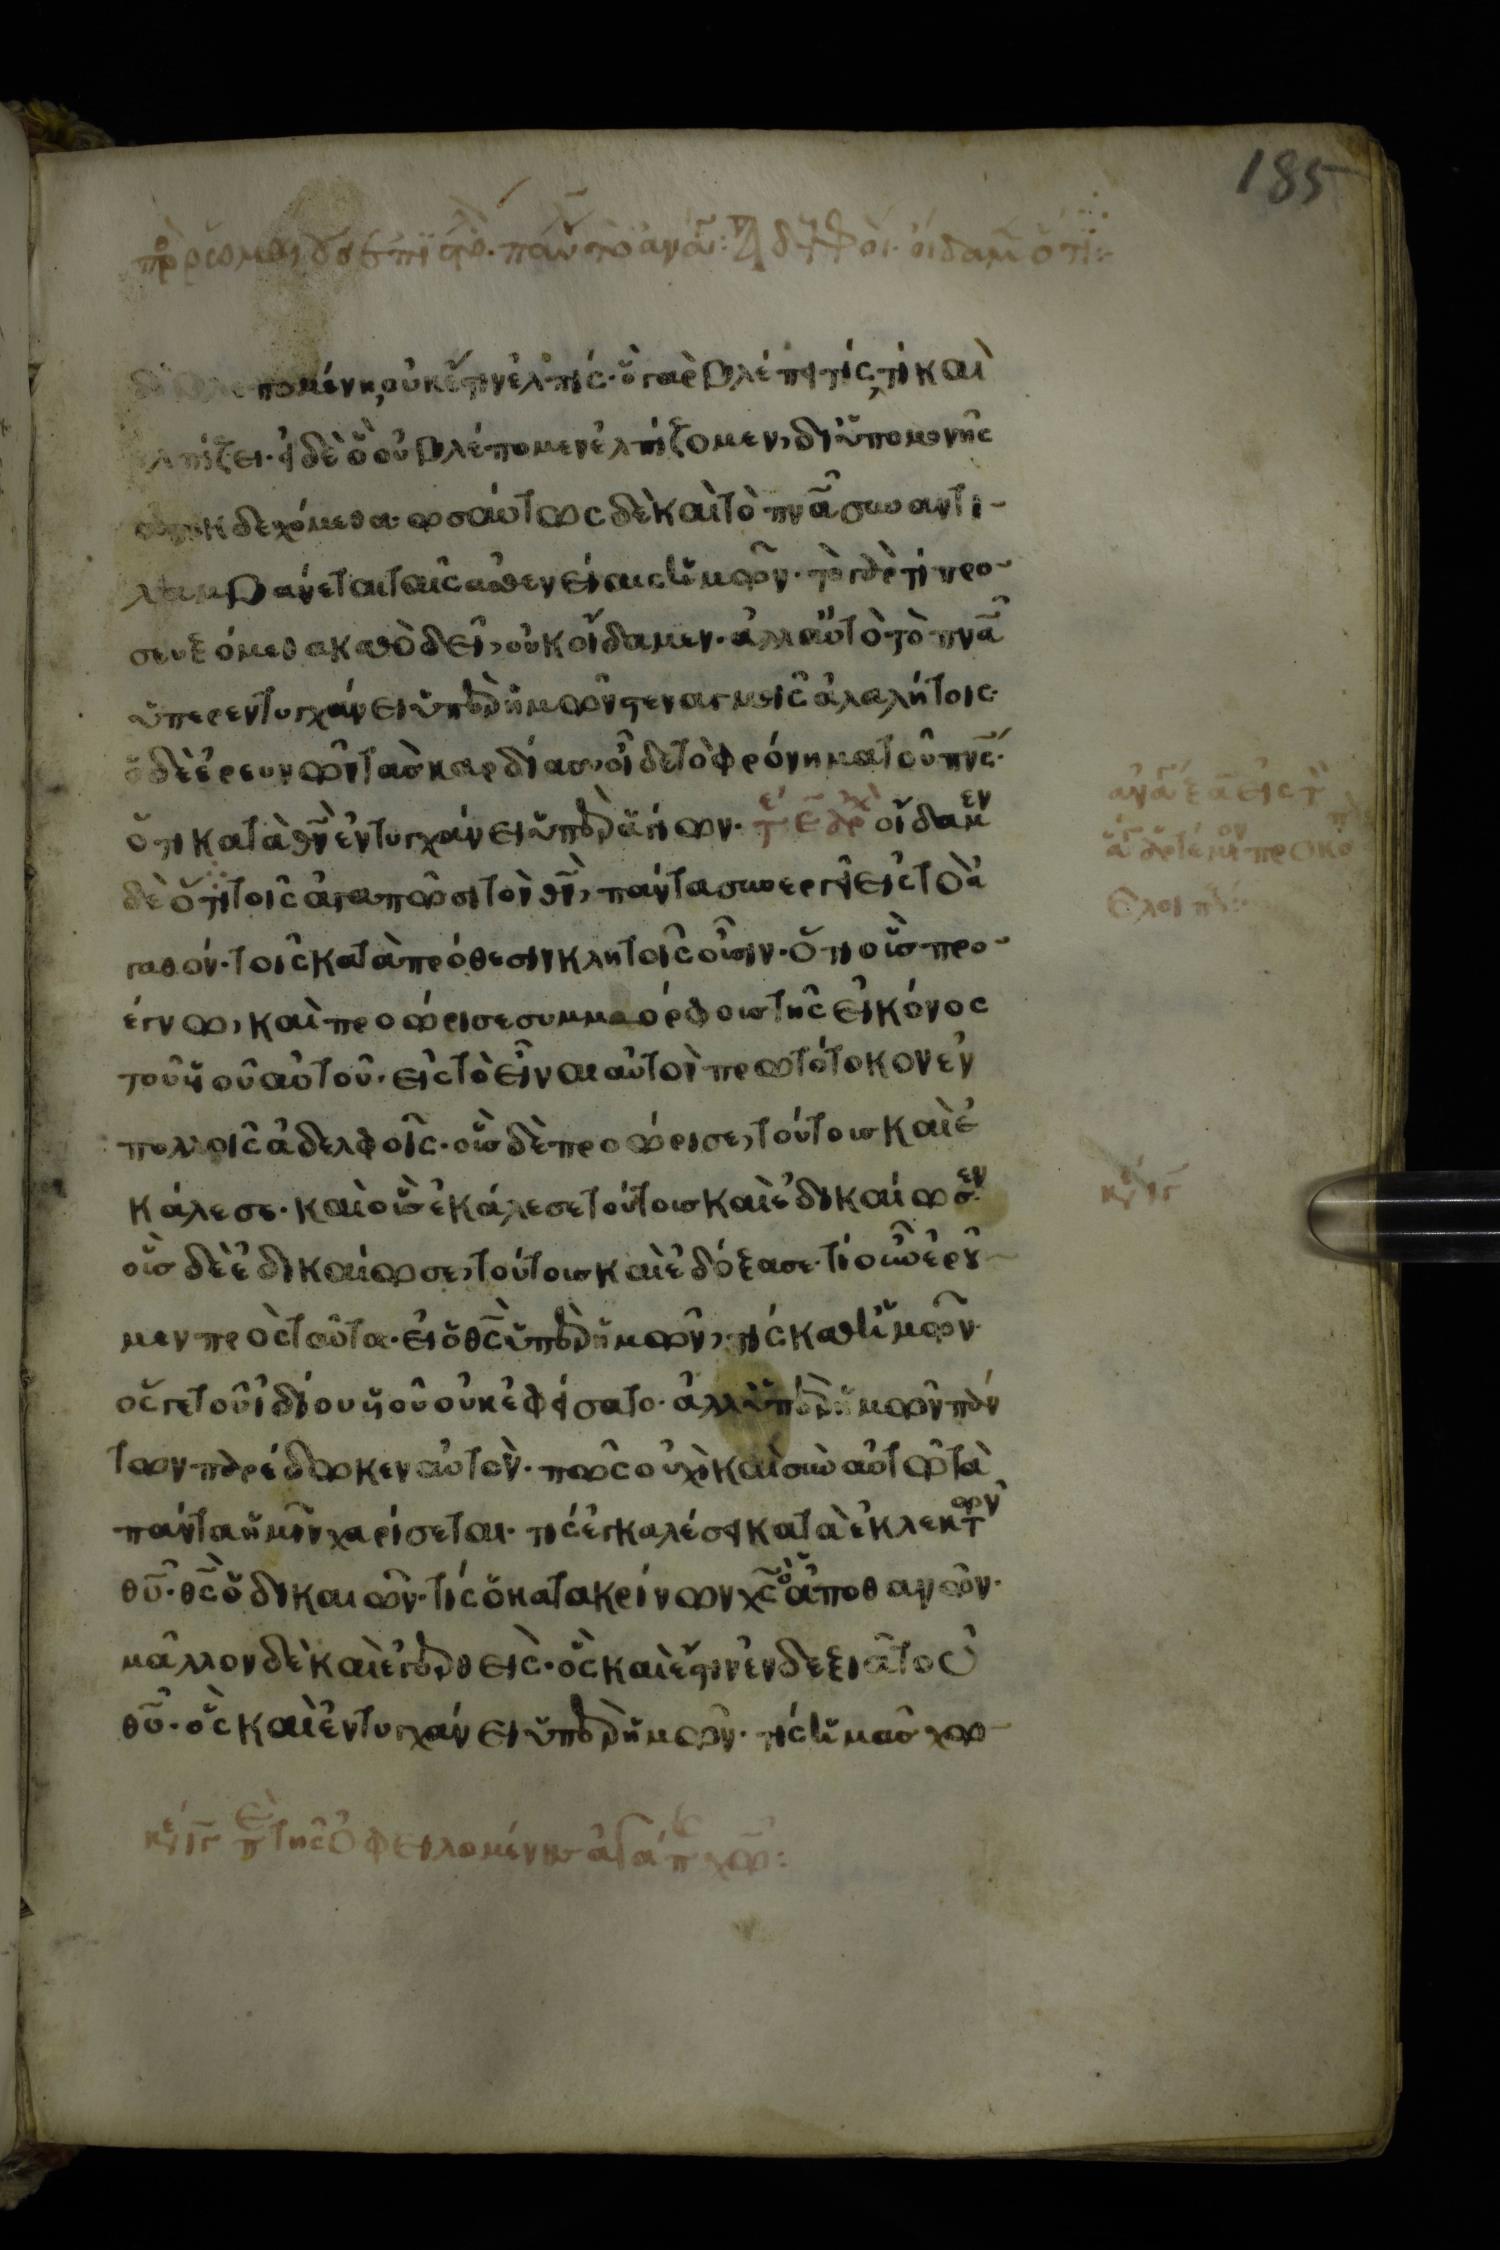 185
δὲ βλεπομένη, οὐκ ἔστιν ἐλπίς· ὃ γὰρ βλέπει τίς, τί καὶ
ἐλπίζει· εἰ δὲ ὃ οὐ βλέπομεν ἐλπίζομεν, δι ὑπομονῆς
ἀπεκδεχόμεθα· ὡσαύτως δὲ καὶ τὸ πνᾶ συναντι-
λαμβάνεται ταῖς ἀσθενείαις ἡμῶν· τὸ γὰρ τί προ-
σευξόμεθα καθὸ δεῖ, οὐκ οἴδαμεν· ἀλλ αὐτὸ τὸ πνᾶ
ὑπερεντυγχάνει ὑπὲρ ἡμῶν στεναγμοῖς ἀλαλήτοις·
ὁ δὲ ἐρευνῶν τὰς καρδίας, οἶδε τὸ φρόνημα τοῦ πνς·
ὅτι κατὰ θν ἐντυγχάνει ὑπὲρ ἁγίων· οἴδαμεν
δὲ ὅτι τοῖς ἀγαπῶσι τὸν θν, πάντα συνεργεῖ εἰς τὸ ἀ
γαθόν· τοῖς κατὰ πρόθεσιν κλητοῖς οὖσιν· ὅτι οὓς προ-
έγνω, καὶ προώρισε συμμόρφους τῆς εἰκόνος
τοῦ υἱοῦ αὐτοῦ· εἰς τὸ εἶναι αὐτὸν πρωτότοκον ἐν
πολλοῖς ἀδελφοῖς· οὓς δὲ προώρισε, τούτους καὶ ἐ
κάλεσε· καὶ οὓς ἐκάλεσε τούτους καὶ ἐδικαίωσεν
οὓς δὲ ἐδικαίωσε, τούτους καὶ ἐδόξασε· τί οὖν ἐροῦ-
μεν πρὸς ταῦτα· εἰ ὁ θς ὑπὲρ ἡμῶν, τίς καθ ἡμῶν·
ὅς γε τοῦ ἰδίου υἱοῦ οὐκ ἐφείσατο· ἀλλ ὑπὲρ ἡμῶν πάν
των παρέδωκεν αὐτὸν· πῶς οὐχὶ καὶ σὺν αὐτῷ τὰ
πάντα ἡμῖν χαρίσεται· τίς ἐγκαλέσει κατὰ ἐκλεκτῶν
θυ· θς ὁ δικαιῶν· τίς ὁ κατακρίνων χς ὁ ἀποθανών·
μᾶλλον δὲ καὶ ἐγερθείς· ὃς καὶ ἔστιν ἐν δεξιᾷ τοῦ
θυ· ὃς καὶ ἐντυγχάνει ὑπὲρ ἡμῶν· τίς ἡμᾶς χω-
τῆς ὀφειλομένης